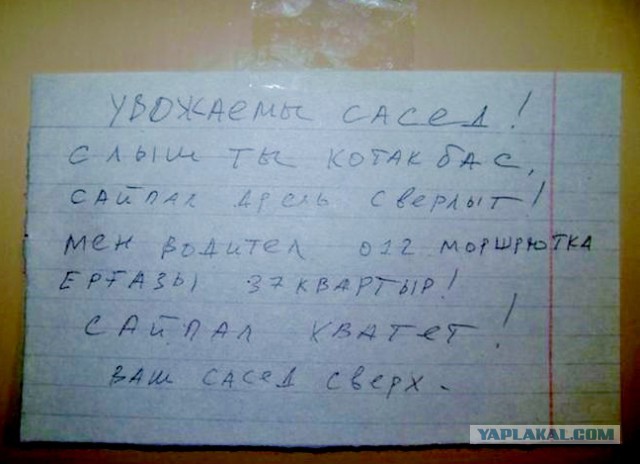 УВОЖАЕМЫ САСЕД!
СЛЫШ ТЫ КОТАКБАС,
САЙПАЛ ДРЕЛЬ СВЕРЛЫТ!
МЕН ВОДИТЕЛ 012 МОРШРЮТКА
ЕРҒАЗЫ 37 КВАРТЫР!
САЙПАЛ ХВАТЕТ!
ВАШ САСЕД СВЕРХ.
YAPLAKAL.COM